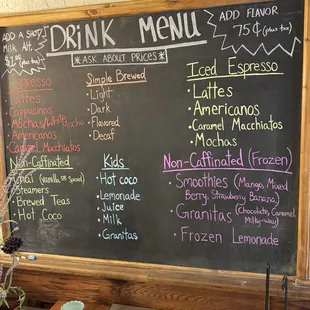 ADD A SHOT
Milk Alt.
DRINK MENU
*ASK ABOUT PRICES*
ADD FLAVOR
75¢ (plus tax)
Espresso
Lattes
Cappucinos
Mochas/White Mocha
Americanos
Caramel Macchiatos
Non-Caffinated
Chai (Vanilla, Spiced)
Steamers
Brewed Teas
Hot Coco
Simple Brewed
Light
Dark
Flavored
Decaf
Kids
Hot coco
Lemonade
Juice
Milk
Granitas
Iced Espresso
Lattes
Americanos
Caramel Macchiatos
Mochas
Non-Caffinated (Frozen)
Smoothies (Mango, Mixed
Berry, Strawberry Banana)
Granitas (Chocolate, Caramel,
Milky-way)
Frozen Lemonade